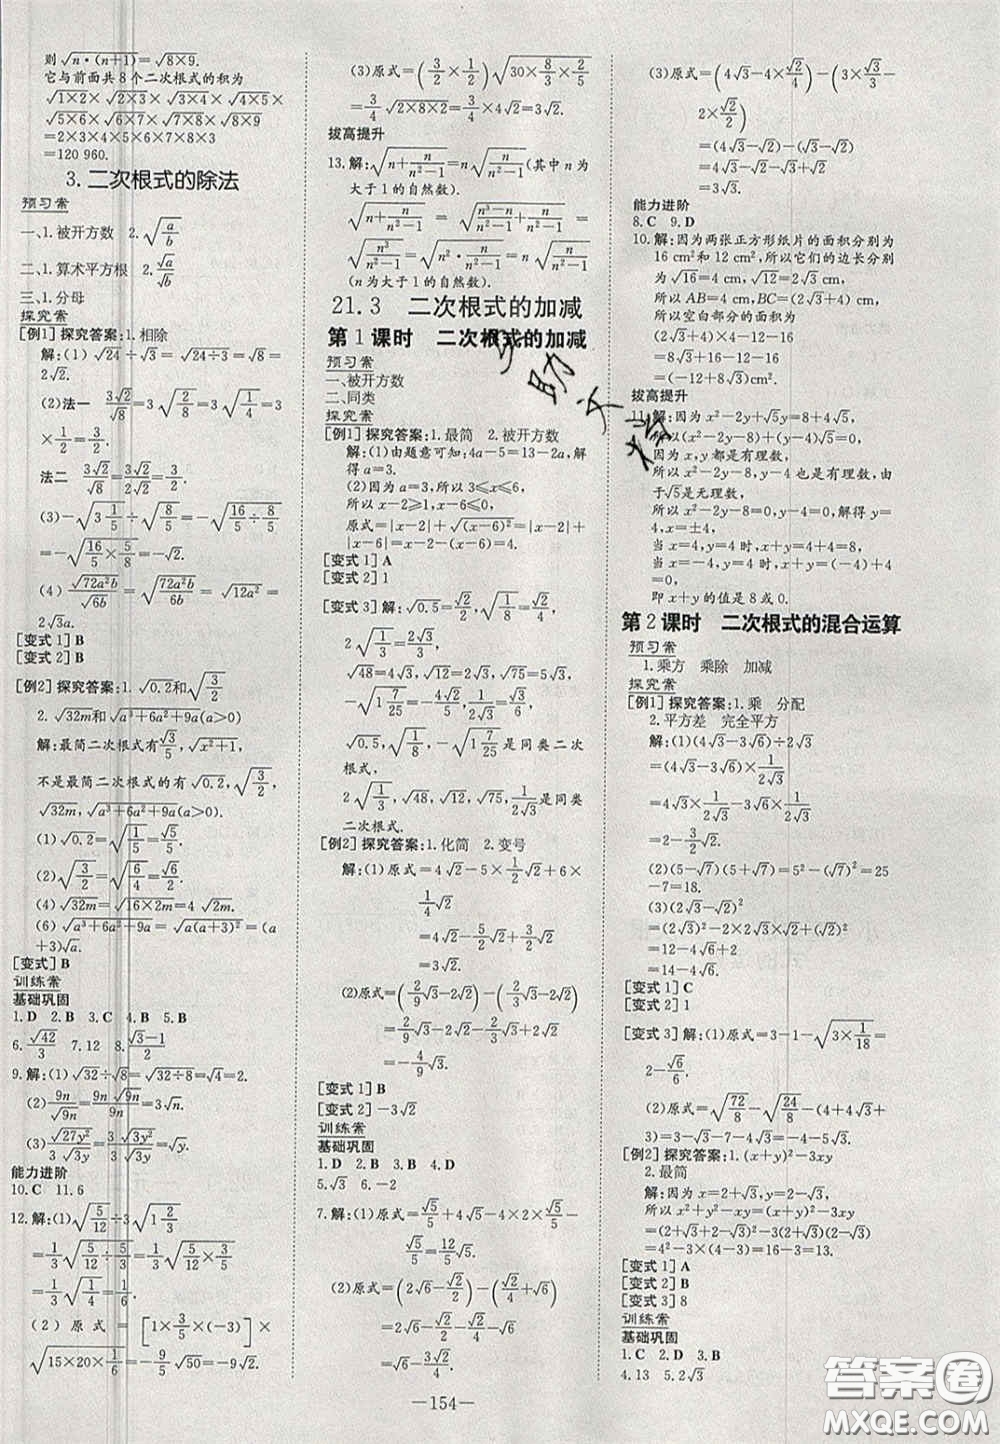 则√(n·(n+1))=√(8×9).
它与前面共8个二次根式的积为
√(1×2)×√(2×3)×√(3×4)×√(4×5)×
√(5×6)×√(6×7)×√(7×8)×√(8×9)
=2×3×4×5×6×7×8×3
=120 960.
3.二次根式的除法
预习案
一、1.被开方数 2.√(a/b)
二、1.算术平方根 2.√a/√b
三、1.分母
探究案
[例1]探究答案:1.相除
解:(1)√24÷√3=√(24÷3)=√8=
2√2.
(2)法一 3√2/√8=3√(2/8)=3√(1/4)=3
×1/2=3/2.
法二 3√2/√8=3√2/2√2=3/2.
(3)-√(3 1/5)÷√(8/5)=-√(16/5÷8/5)
=-√(16/5×5/8)=-√2.
(4)√(72a²b)/√(6b)=√(72a²b/6b)=√(12a²)=
2√3a.
[变式1]B
[变式2]B
[例2]探究答案:1.√0.2和√(3/2)
2.√(32m)和√(a³+6a²+9a)(a>0)
解:最简二次根式有√3/5,√(x²+1),
不是最简二次根式的有√0.2,√(3/2),
√(32m),√(a³+6a²+9a)(a>0).
(1)√0.2=√(1/5)=√5/5.
(2)√(3/2)=√3/√2=√6/2.
(4)√(32m)=√(16×2m)=4√(2m).
(6)√(a³+6a²+9a)=√(a(a+3)²)=
(a+3)√a.
[变式]B
训练案
基础巩固
1.D 2.B 3.C 4.B 5.B
6.√42/3 7.12 8.(√3-1)/2
9.解:(1)√32÷√8=√(32÷8)=√4=2.
(2)9n/√(9n)=9n√(9n)/9n=√(9n)=3√n.
(3)√(27y²)/3√(3y)=1/3√(27y²/3y)=√y.
能力进阶
10.C 11.6
12.解:(1)√(5/12)÷3√(1 2/3)
=1/3√(5/12÷5/3)=1/3√(5/12×3/5)
=1/3√(1/4)=1/6.
(2)原式=[1×3/5×(-3)]×
√(15×20×1/6)=-9/5√50=-9√2.
(3)原式=(3/2×1/2)√(30×8/3×2/5)
=3/4√(2×8×2)=3/4×4√2=3√2.
拔高提升
13.解:√(n+n/(n²-1))=n√(n/(n²-1))(其中n为
大于1的自然数).
√(n+n/(n²-1))=√((n³-n+n)/(n²-1))=
√(n³/(n²-1))=n√(n/(n²-1))
(n为大于1的自然数).
21.3 二次根式的加减
第1课时 二次根式的加减
预习案
一、被开方数
二、同类
探究案
[例1]探究答案:1.最简 2.被开方数
解:(1)由题意可知:4a-5=13-2a,解
得a=3.
(2)因为a=3,所以3≤x≤6,
所以x-2>0,x-6≤0,
原式=|x-2|+√((x-6)²)=|x-2|+
|x-6|=x-2-(x-6)=4.
[变式1]A
[变式2]1
[变式3]解:√0.5=√2/2,√(1/8)=√2/4,
2√(1/3)=2√3/3,
√48=4√3,√12=2√3,√75=5√3,
-√(1 7/25)=-4√2/5,1/2√3=√3/6,
√0.5,√(1/8),-√(1 7/25)是同类二次
根式.
2√(1/3),√48,√12,√75,1/2√3是同类
二次根式.
[例2]探究答案:1.化简 2.变号
解:(1)原式=4√2-5×1/2√2+6×
1/4√2
=4√2-5/2√2+3/2√2
=3√2.
(2)原式=(2/9√3-2√2)-(2/3√3-2√2)
=2/9√3-2√2-2/3√3+2√2
=-4/9√3.
[变式1]B
[变式2]-3√2
训练案
基础巩固
1.D 2.B 3.B 4.B
5.√3 6.-2
7.解:(1)原式=√5/5+4√5-4√5-
√5/5=0.
(2)原式=(2√6-√2/2)-(√2/4+√6)
=2√6-√2/2-√2/4-√6
=√6-3/4√2.
(3)原式=(4√3-4×√2/4)-(3×√3/3-
2×√2/2)
=(4√3-√2)-(√3-√2)
=4√3-√2-√3+√2
=3√3.
能力进阶
8.C 9.D
10.解:因为两张正方形纸片的面积分别为
16 cm²和12 cm²,所以它们的边长分别为
√16=4 cm,√12=2√3 cm,
所以AB=4 cm,BC=(2√3+4)cm,
所以空白部分的面积
=(2√3+4)×4-12-16
=8√3+16-12-16
=(-12+8√3)cm².
拔高提升
11.解:因为x²-2y+√5y=8+4√5,
所以x²-2y-8=√5(4-y),
因为x,y都是有理数,
所以x²-2y-8,4-y也是有理数,
由于√5是无理数,
所以x²-2y-8=0,4-y=0,解得y=
4,x=±4,
当x=4,y=4时,x+y=4+4=8.
当x=-4,y=4时,x+y=(-4)+4=0.
即x+y的值是8或0.
第2课时 二次根式的混合运算
预习案
1.乘方 乘除 加减
探究案
[例1]探究答案:1.乘 分配
2.平方差 完全平方
解:(1)(4√3-3√6)÷2√3
=(4√3-3√6)×1/2√3
=4√3×1/2√3-3√6×1/2√3
=2-3/2√2.
(2)(5-√7)(5+√7)-(3√2)²=25
-7-18=0.
(3)(2√3-√2)²-2√2×√3
=(2√3)²-2×2√3×√2+(√2)²-2√6
=12-4√6+2-2√6
=14-6√6.
[变式1]C
[变式2]1
[变式3]解:(1)原式=3-1-√(3×1/18)=
2-√6/6.
(2)原式=√(72/8)-√(24/8)-(4+4√3+
3)=3-√3-4-4√3-3=-4-5√3.
[例2]探究答案:1.(x+y)²-3xy
2.最简
解:因为x=2+√3,y=2-√3,
所以x²+y²-xy=(x+y)²-3xy
=(2+√3+2-√3)²-3(2+√3)(2-√3)
=4²-3×(4-3)=16-3=13.
[变式1]A
[变式2]B
[变式3]8
训练案
基础巩固
1.C 2.D 3.B
4.13 5.2√3
—154—
答案圈
MXQE.COM